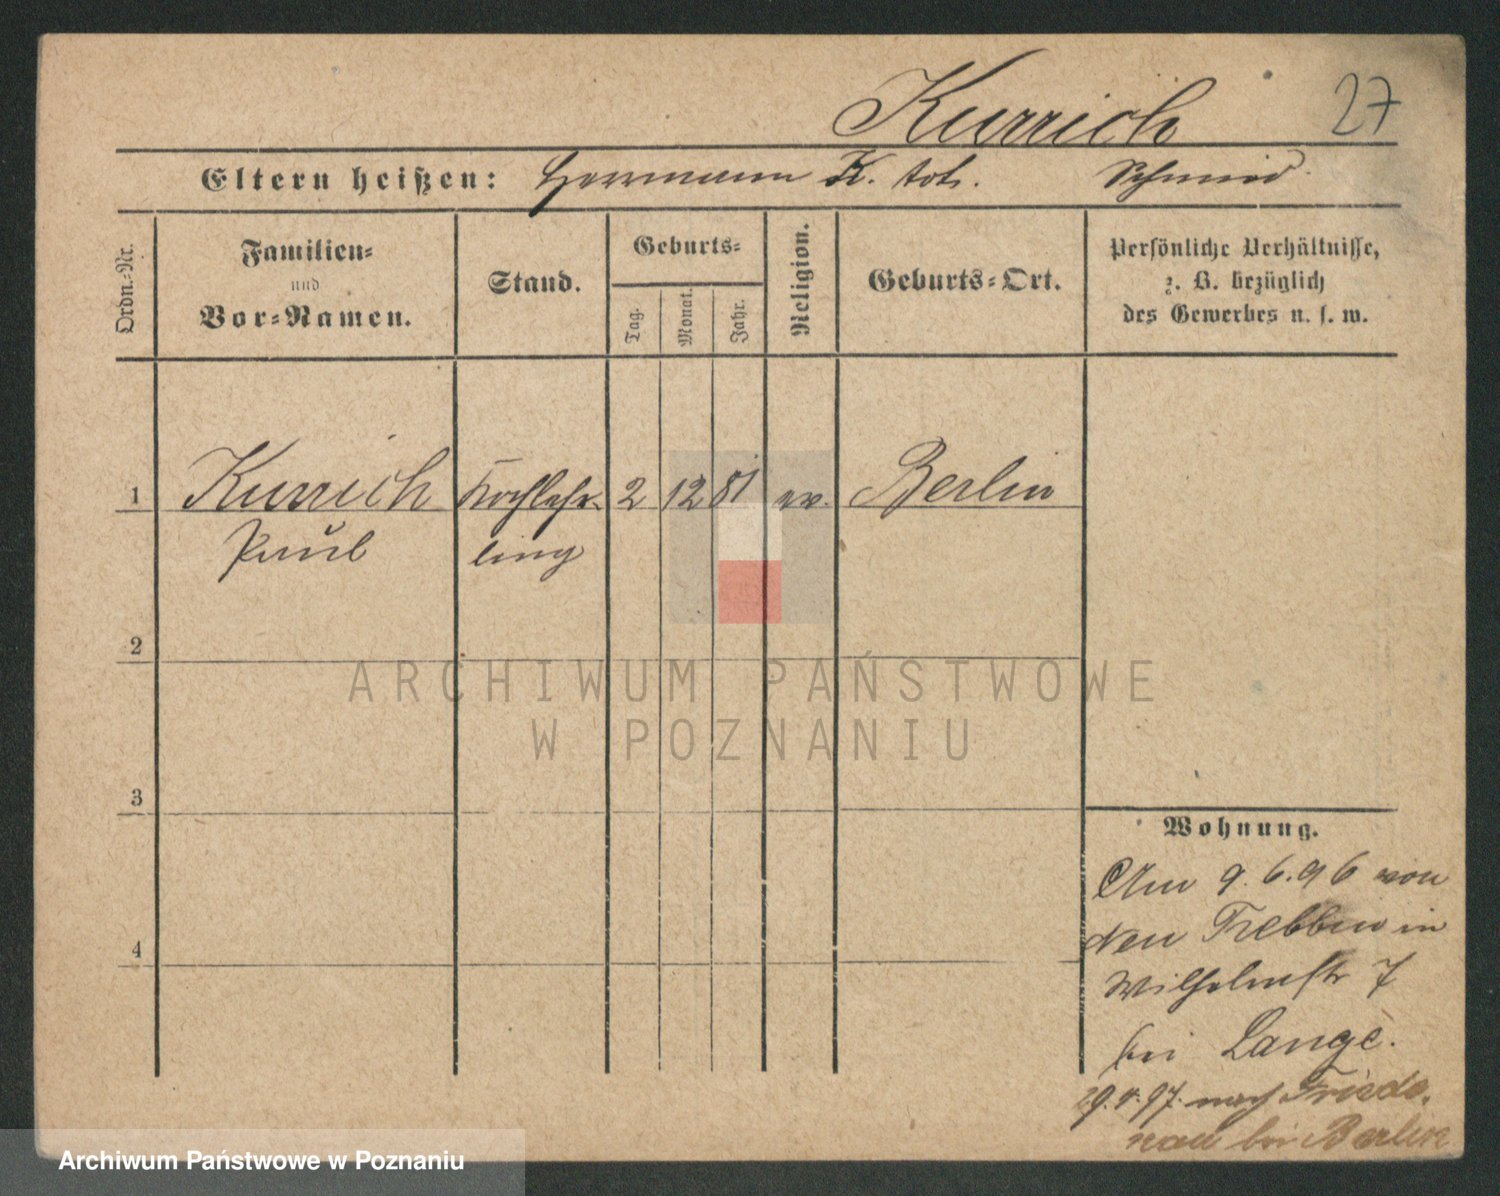 Kurrich 27
Eltern heißen: Herrmann K. tot. Schmid
Ordn.-Nr.
Familien-
und
Vor-Namen.
Stand.
Geburts-
Tag.
Monat.
Jahr.
Religion.
Geburts-Ort.
Persönliche Verhältnisse,
z. B. bezüglich
des Gewerbes u. s. w.
1 Kurrich Kochlehr- 2 12 81 ev. Berlin
Paul ling
2
3
4
Wohnung.
Am 9.6.96 von
Trebbin in
Wilhelmstr 7
bei Lange.
29. 4. 97. nach Friede-
nau bei Berlin
ARCHIWUM PAŃSTWOWE
W POZNANIU
Archiwum Państwowe w Poznaniu